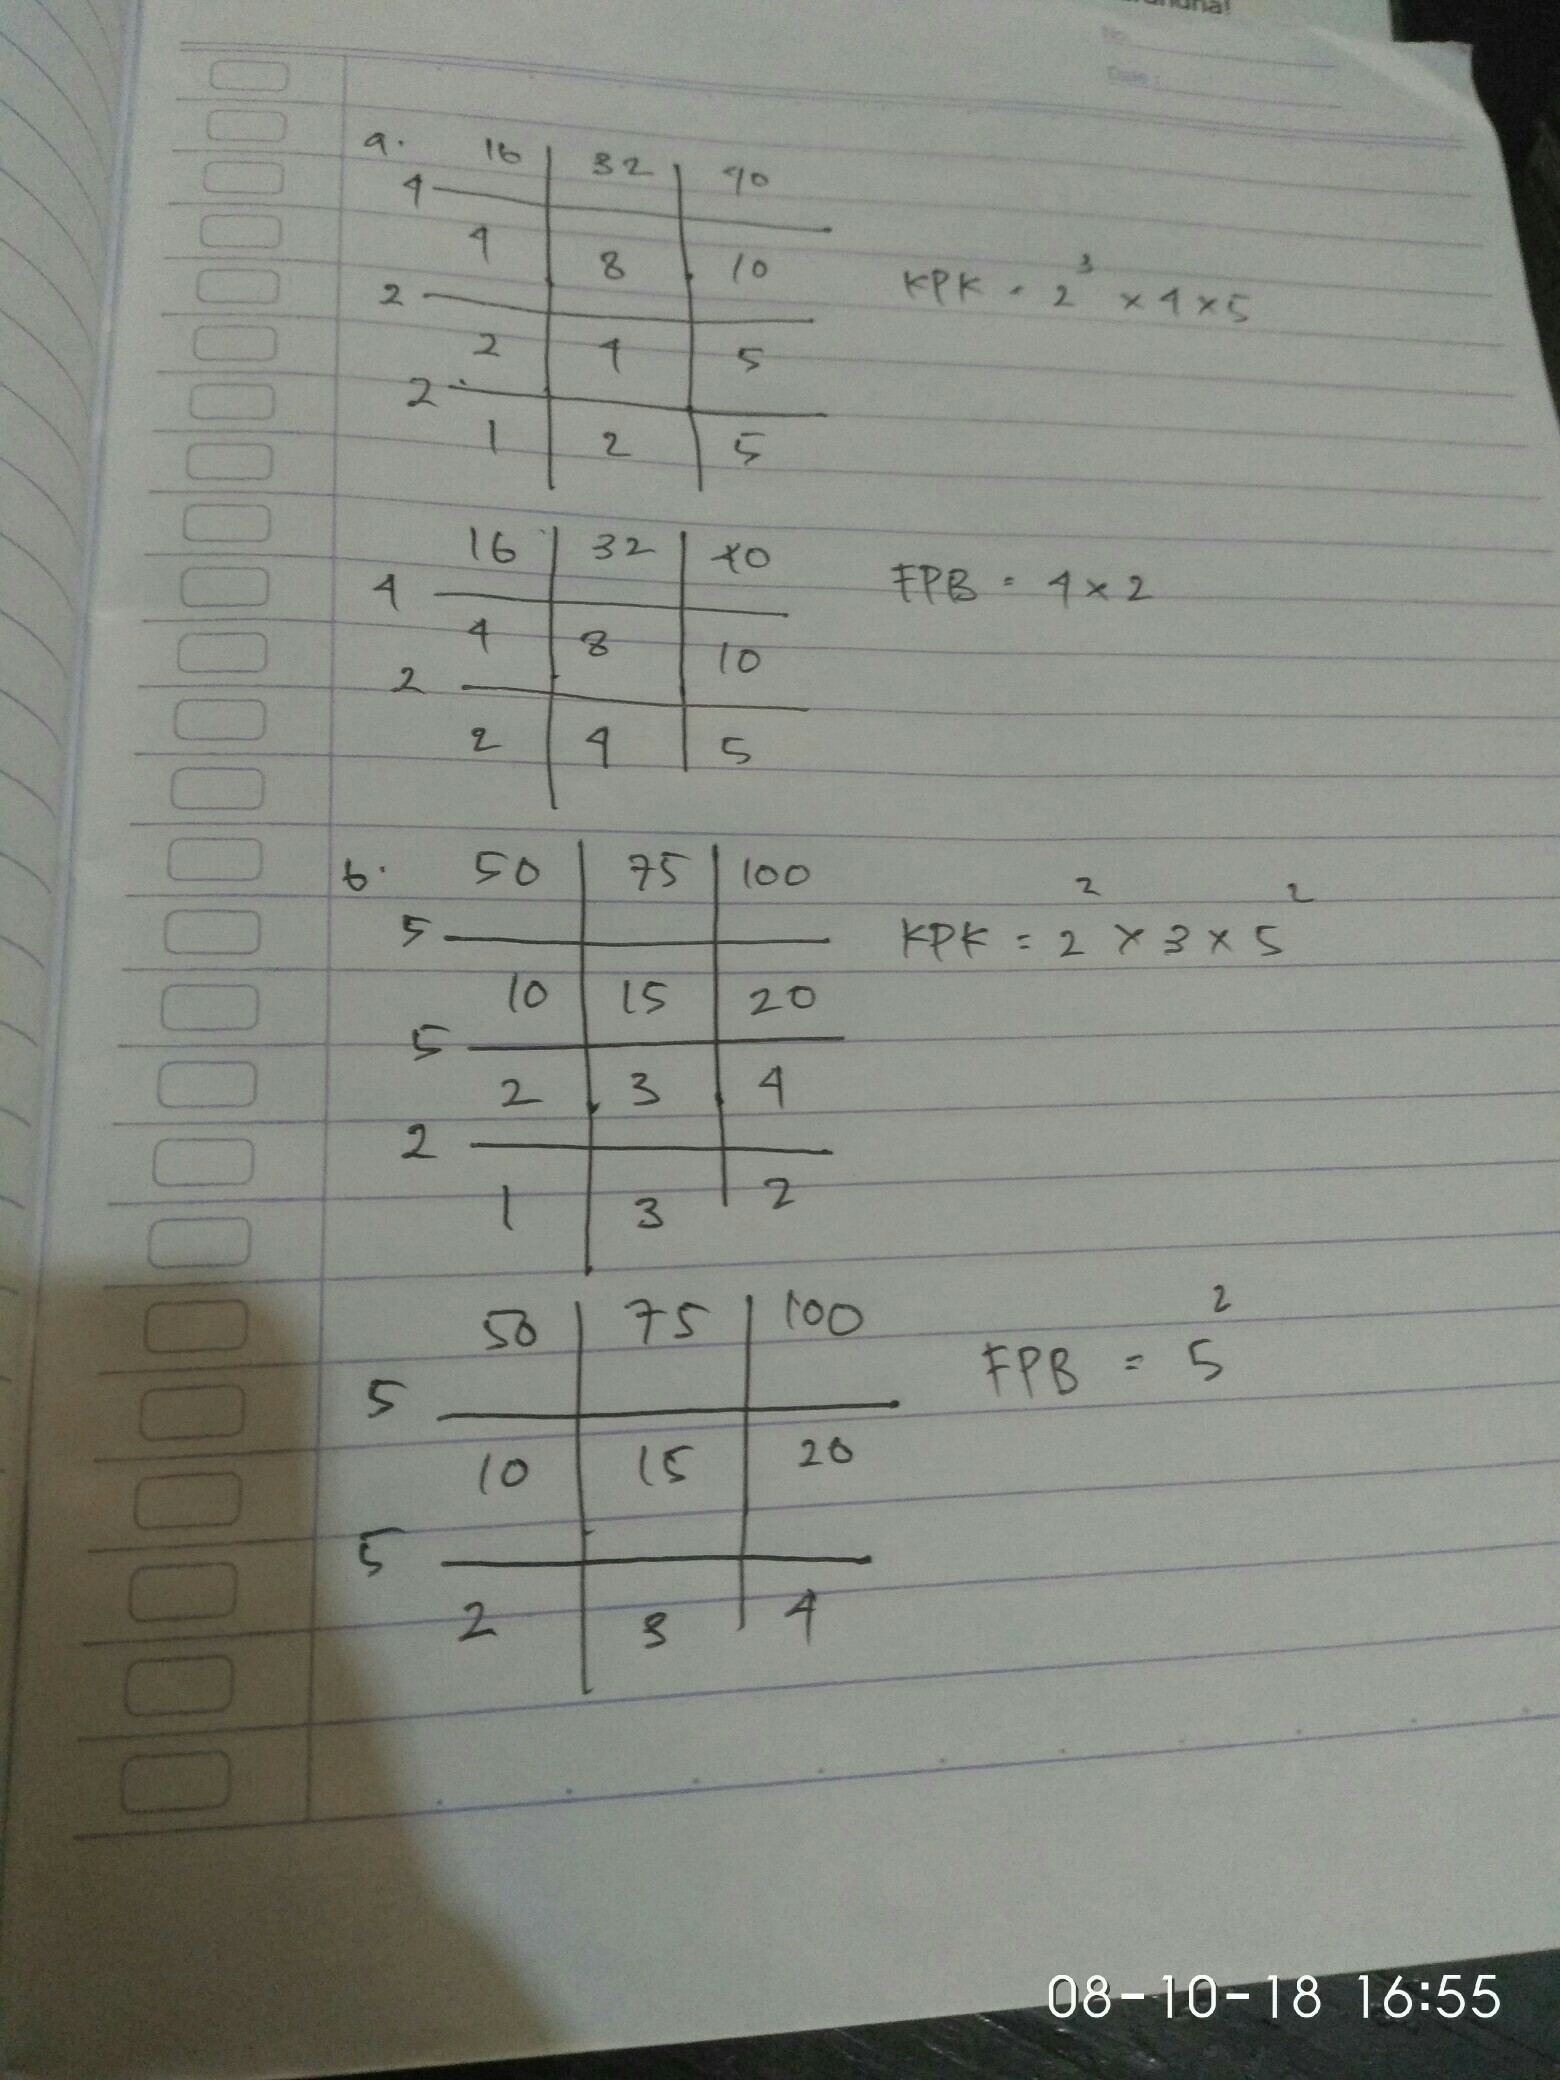 No
Date :
a. 16 32 40
4
4 8 10
KPK = 2³ × 4 × 5
2
2 4 5
2
1 2 5
16 32 40
4
FPB = 4 × 2
4 8 10
2
2 4 5
b. 50 75 100
5
KPK = 2² × 3 × 5²
10 15 20
5
2 3 4
2
1 3 2
50 75 100
5
FPB = 5²
10 15 20
5
2 3 4
08-10-18 16:55